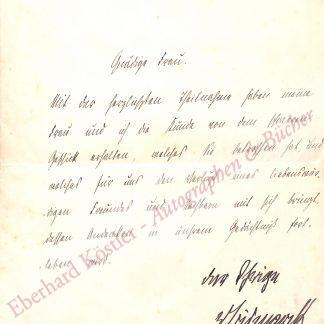 Gnädige Frau.
Mit der herzlichsten Theilnahme haben meine
Frau und ich die Kunde von dem schweren
Geschick erhalten, welches Sie betroffen hat und
welches für uns den Verlust eines liebenswür-
digen Freundes und Nachbarn mit sich bringt,
dessen Andenken in unserm Gedächtniß fort-
leben wird.
der Ihrige
vBismarck
Eberhard Köstler - Autographen & Bücher